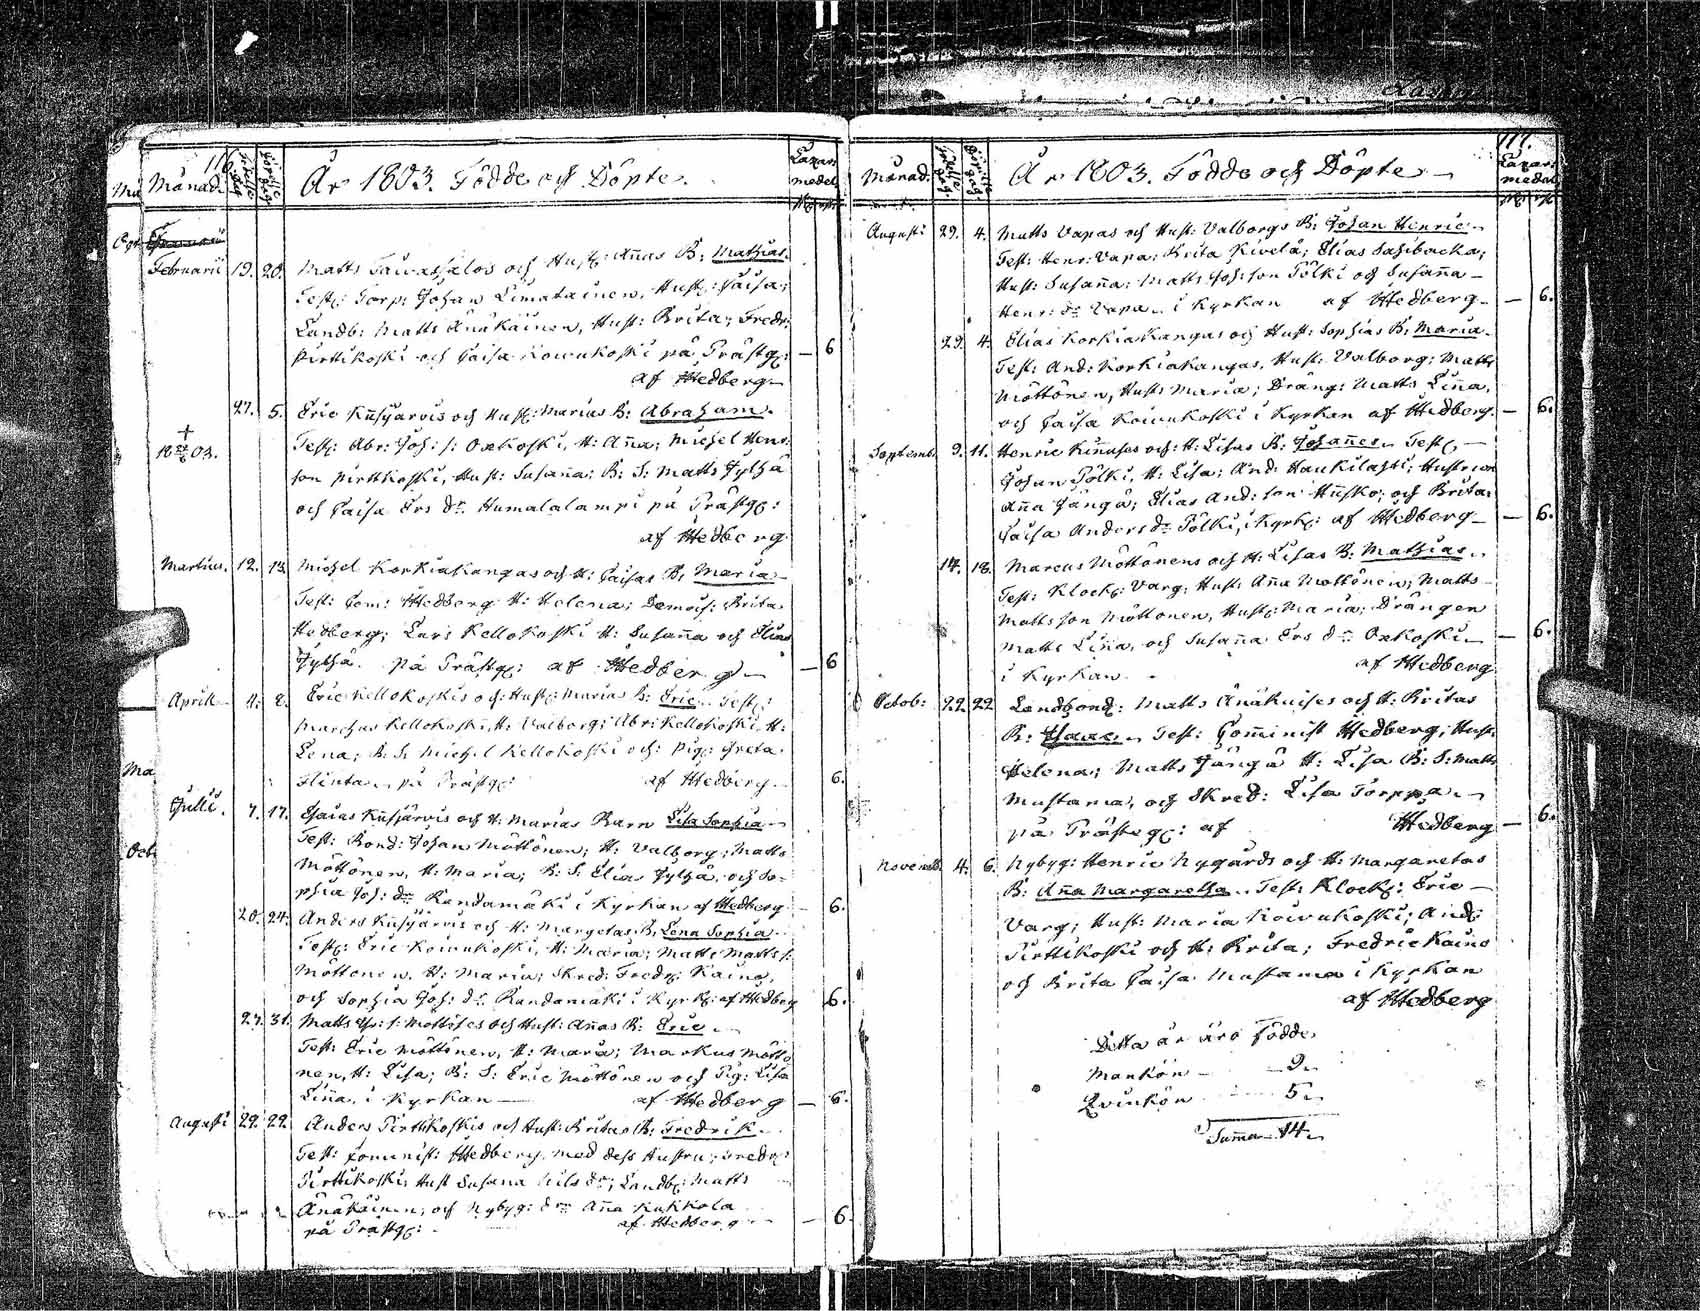 116.
Månad.
År 1803. Födde och Döpte.
Lazar:
medel
Februarii 19. 20. Matts Taivassalos och Hust: Annas B: Mathias.
Test: Torp: Johan Limatainen, Hust: Caisa;
Landb: Matts Änäkäinen, Hust: Brita; Fredr:
Pirttikoski och Caisa Koivukoski på Prästg: — 6
af Hedberg
27. 5. Eric Kusijärvis och Hust: Marias B: Abraham.
Test: Abr: Joh: s: Oxkoski, H: Anna; Michel Henr:
son Pirttikoski, Hust: Susanna; B: S: Matts Jylhä
och Caisa Ers dr Humalalampi på Prästg:
af Hedberg
Martius. 12. 13. Michel Korkiakangas och H: Caisas B: Maria
Test: Com: Hedberg H: Helena; Demois: Brita
Hedberg; Lars Kellokoski H: Susanna och Elias
Jylhä på Prästg: af Hedberg — 6
April 4. 8. Eric Kellokoskis och Hust: Marias B: Eric Test:
Kellokoski, H: Valborg; Abr: Kellokoski, H:
Lena; B: S: Michel Kellokoski och Pig: Greta
på Prästg: af Hedberg 6.
Julii. 7. 17. Esaias Kusijärvis och H: Marias Barn Lisa Sophia
Test: Bond: Johan Möttönen; H: Valborg; Matts
Möttönen, H: Maria; B: S: Elias Jylhä, och So-
phia Joh: dr Randamäki i Kyrkan af Hedberg 6.
20. 24. Anders Kusijärvis och H: Margetas B. Lena Sophia
Test: Eric Koivukoski, H: Maria; Matts Matts s:
Möttönen, H: Maria; Skred: Fredr: Kaino,
och Sophia Joh: dr Randamäki i Kyrk: af Hedberg 6.
27. 31. Matts och Hust: Annas B: Eric
Test: Eric Möttönen, H: Maria; Markus Möttö
nen, H: Lisa; B: S: Eric Möttönen och Pig: Lisa
Linna, i Kyrkan — af Hedberg — 6.
Augusti 22. 22. Anders Pirttikoskis och Hust: Britas B: Fredrik
Test: Hedberg med dess Hustru; Fredr:
Pirttikoski, Hust Susana Nils dr; Landb: Matts
Änäkäinen; och Nybyg: dr Anna Kukkola — 6
på Prästg: af Hedberg
117.
Månad.
År 1803. Födde och Döpte
Lazar:
medel
Augusti 29. 4. Matts Vapas och Hust: Valborgs B: Johan Henric
Test: Henr: Vapa; Brita Kivelä; Elias
Hust: Susanna; Matts Joh: son Pölki och Susanna
Henr: dr Vapa i Kyrkan af Hedberg — 6.
29. 4. Elias Korkiakangas och Hust: Sophias B: Maria
Test: And: Korkiakangas, Hust: Valborg; Matts
Möttönen, Hust: Maria; Dräng: Matts Linna,
och Caisa Koivukoski i Kyrkan af Hedberg. — 6.
Septemb. 9. 11. Henric och H: Lisas B: Johannes Test:
Johan Pölki, H: Lisa; And: Haukilahti; Hustrun
Anna Jängä; Elias And: son och Brita
Caisa Anders dr Pölki, i Kyrk: af Hedberg — 6.
14. 18. Marcus Möttönens och H: Lisas B: Mathias
Test: Klock: Varg; Hust: Anna Möttönen; Matts
Matts son Möttönen, Hust: Maria; Drängen
Matts Linna, och Susanna Ers dr Oxkoski — 6.
i Kyrkan af Hedberg
Octob: 22. 22 Landbond: Matts och H: Britas
B: Isaac Test: Comminist Hedberg; Hust:
Helena; Matts Jängä H: Lisa B: S: Matts
Mustama, och Skred: Lisa Torppa
på Prästeg: af Hedberg — 6.
Novemb. 4. 6. Nybyg: Henric Nygårds och H: Margaretas
B: Anna Margaretha Test: Klock: Eric
Varg; Hust: Maria Koivukoski; And:
Pirttikoski och H: Brita; Fredric Kaino
och Brita Caisa Mustama i Kyrkan
af Hedberg
Detta år äro födde
Mankön 9
Qvinkön 5
Summa 14